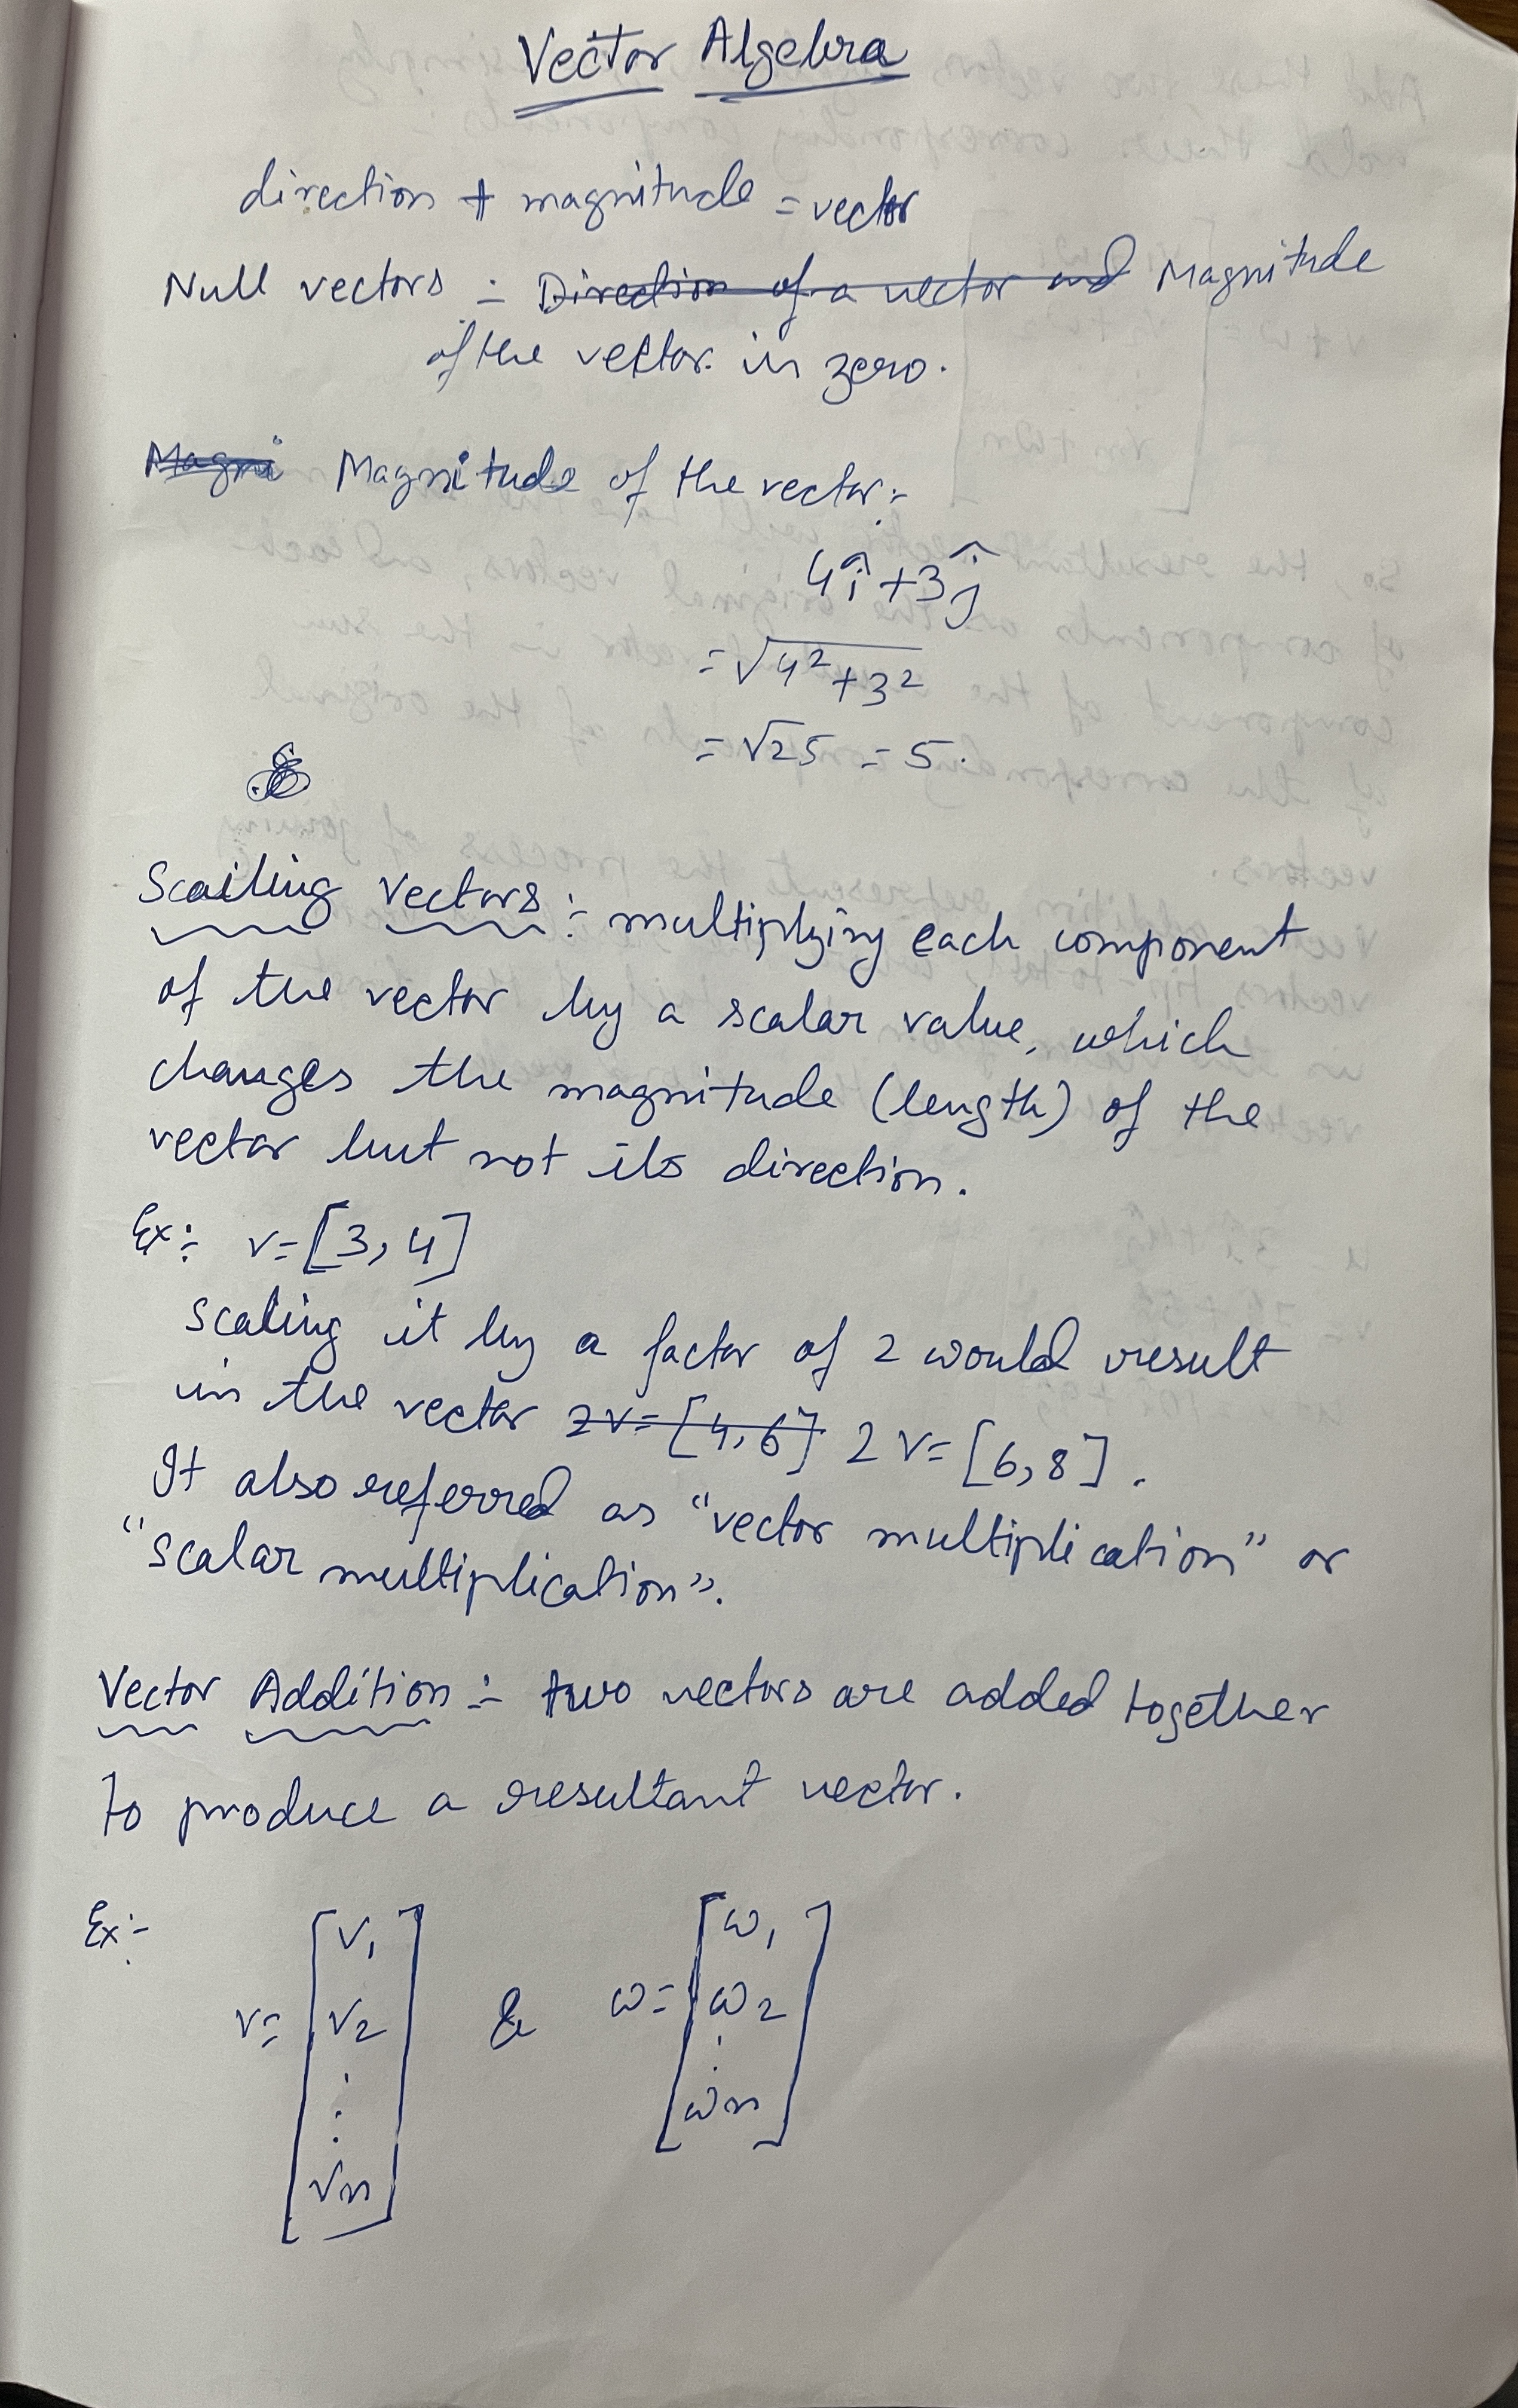 Vector Algebra
direction + magnitude = vector
Null vectors :- Direction of a vector and Magnitude
of the vector in zero.
Magni Magnitude of the vector :-
4î + 3ĵ
= √4² + 3²
= √25 = 5.
Scailing Vectors :- multiplying each component
of the vector by a scalar value, which
changes the magnitude (length) of the
vector but not its direction.
Ex :- v = [3, 4]
Scaling it by a factor of 2 would result
in the vector 2v = [4, 6] 2v = [6, 8].
It also referred as "vector multiplication" or
"scalar multiplication".
Vector Addition :- two vectors are added together
to produce a resultant vector.
Ex :-
v = [v₁ v₂ ⋮ vn] & ω = [ω₁ ω₂ ⋮ ωn]